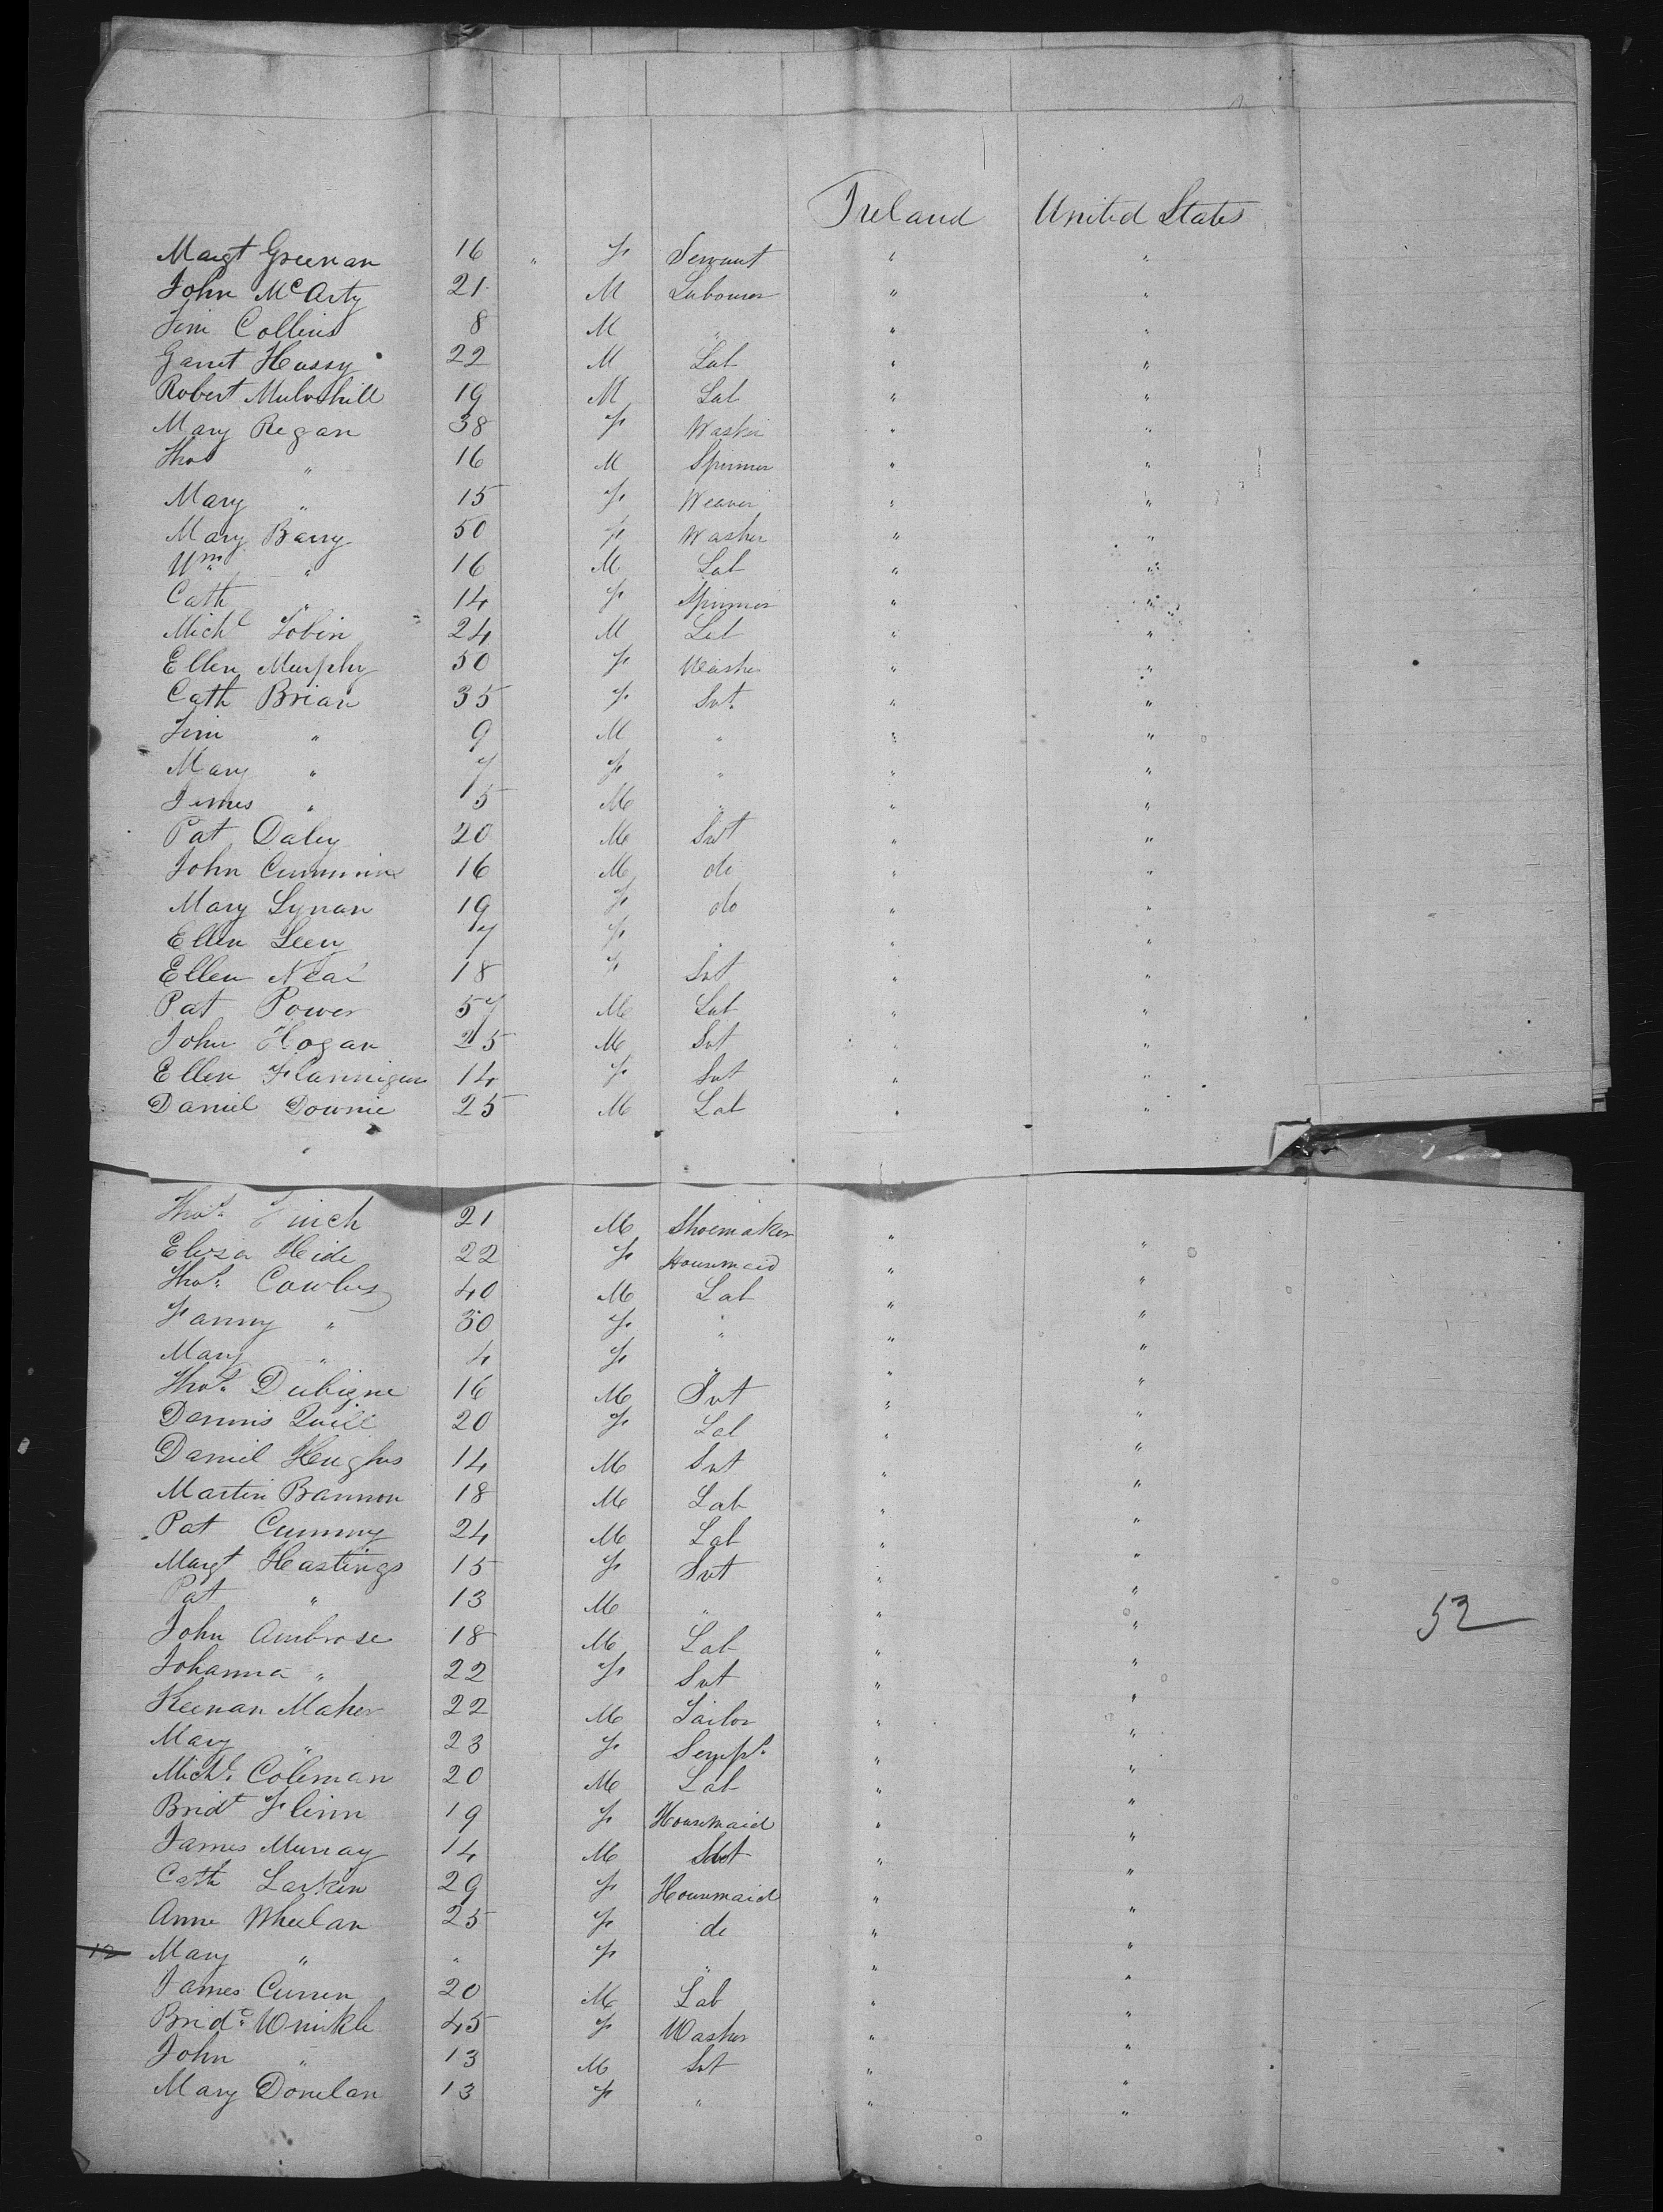 Ireland United States
Margt Greenan 16 " F Servant " "
John McArty 21 M Labourer " "
Jim Collins 8 M " " "
Garret Hussy 22 M Lab " "
Robert Mulvshill 19 M Lab " "
Mary Regan 38 F Washer " "
Thos " 16 M Spinner " "
Mary " 15 F Weaver " "
Mary Barry 50 F Washer " "
Wm " 16 M Lab " "
Cath " 14 F Spinner " "
Michl Tobin 24 M Lab " "
Ellen Murphy 50 F Washer " "
Cath Brian 35 F Svt. " "
Jim " 9 M " " "
Mary " 7 F " " "
James " 15 M " " "
Pat Daley 20 M Svt " "
John Cummins 16 M do " "
Mary Lynan 19 F do " "
Ellen Leey 7 F " "
Ellen Neal 18 F Svt " "
Pat Power 57 M Lab " "
John Hogan 25 M Svt " "
Ellen Flannigan 14 F Svt " "
Daniel Downie 25 M Lab " "
Thos. 21 M Shoemaker " "
Eliza Heide 22 F Housemaid " "
Thos. Cowhey 40 M Lab " "
Fanny " 30 F " " "
Mary " 4 F " " "
Thos. Dubigne 16 M Svt " "
Dennis Quill 20 F Lab " "
Daniel Hughes 14 M Svt " "
Martin Bannon 18 M Lab " "
Pat Cummy 24 M Lab " "
Margt Hastings 15 F Svt " "
Pat " 13 M " " "
52
John Ambrose 18 M Lab " "
Johanna " 22 F Svt " "
Keenan Maher 22 M Tailor " "
Mary " 23 F Semps. " "
Michl. Coleman 20 M Lab " "
Bridt Flinn 19 F Housemaid " "
James Murray 14 M Svt " "
Cath Larkin 29 F Housemaid " "
Anne Wheelan 25 F do " "
12 Mary " " F " " "
James Curren 20 M Lab " "
Bridt. Winkle 45 F Washer " "
John " 13 M Svt " "
Mary Donelan 13 F " " "